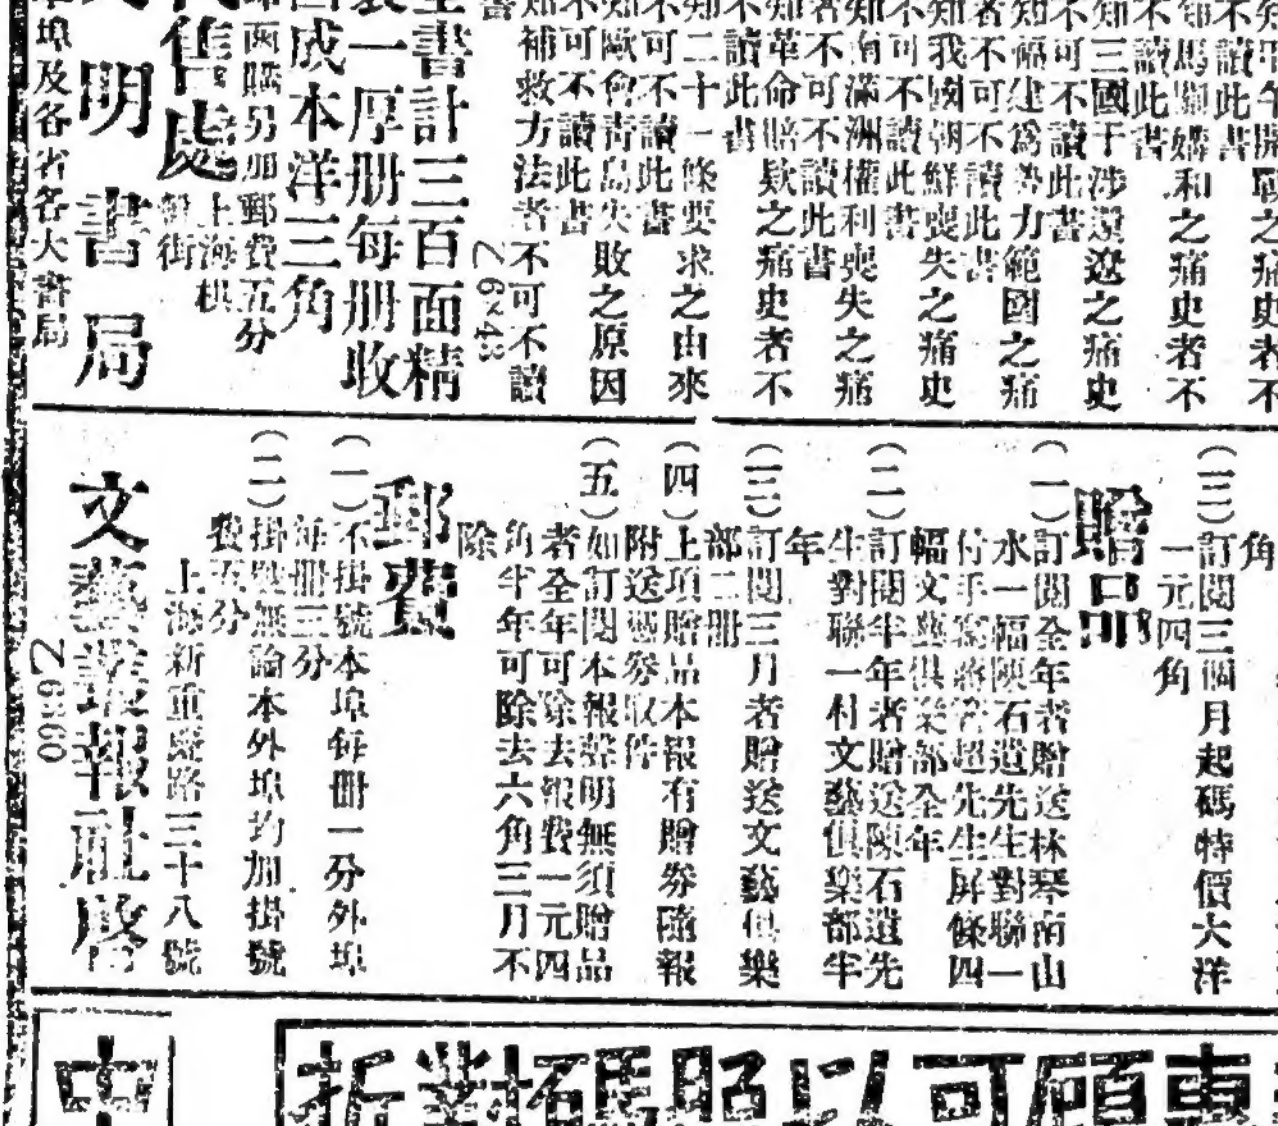 知甲午開戰之痛史者不
不讀此書
知馬關媾和之痛史者不
不讀此書
知三國干涉還遼之痛史
不可不讀此書
知福建爲勢力範圍之痛
者不可不讀此書
知我國朝鮮喪失之痛史
不可不讀此書
知南滿洲權利喪失之痛
者不可不讀此書
知革命賠欵之痛史者不
不讀此書
知二十一條要求之由來
不可不讀此書
知歐會靑島失敗之原因
不可不讀此書
知補救方法者不可不讀
書
Z69·48
全書計三百面精
裝一厚册每册收
成本洋三角
函購另加郵費五分
代售處
上海棋
明書局
本埠及各省各大書局
角
(三)訂閱三個月起碼特價大洋
一元四角
贈品
(一)訂閱全年者贈送林琴南山
水一幅陳石遺先生對聯一
付手寫蔣著超先生屏條四
幅文藝俱樂部全年
(二)訂閱半年者贈送陳石遺先
生對聯一付文藝俱樂部半
年
(三)訂閱三月者贈送文藝俱樂
部二册
(四)上項贈品本報有贈券隨報
附送憑券取件
(五)如訂閱本報聲明無須贈品
者全年可除去報費一元四
角半年可除去六角三月不
除
郵費
(一)不掛號本埠每册一分外埠
每册三分
(二)掛號無論本外埠均加掛號
費五分
上海新重慶路三十八號
文藝叢報社啓
Z68·60
車願可以照碼對折
中